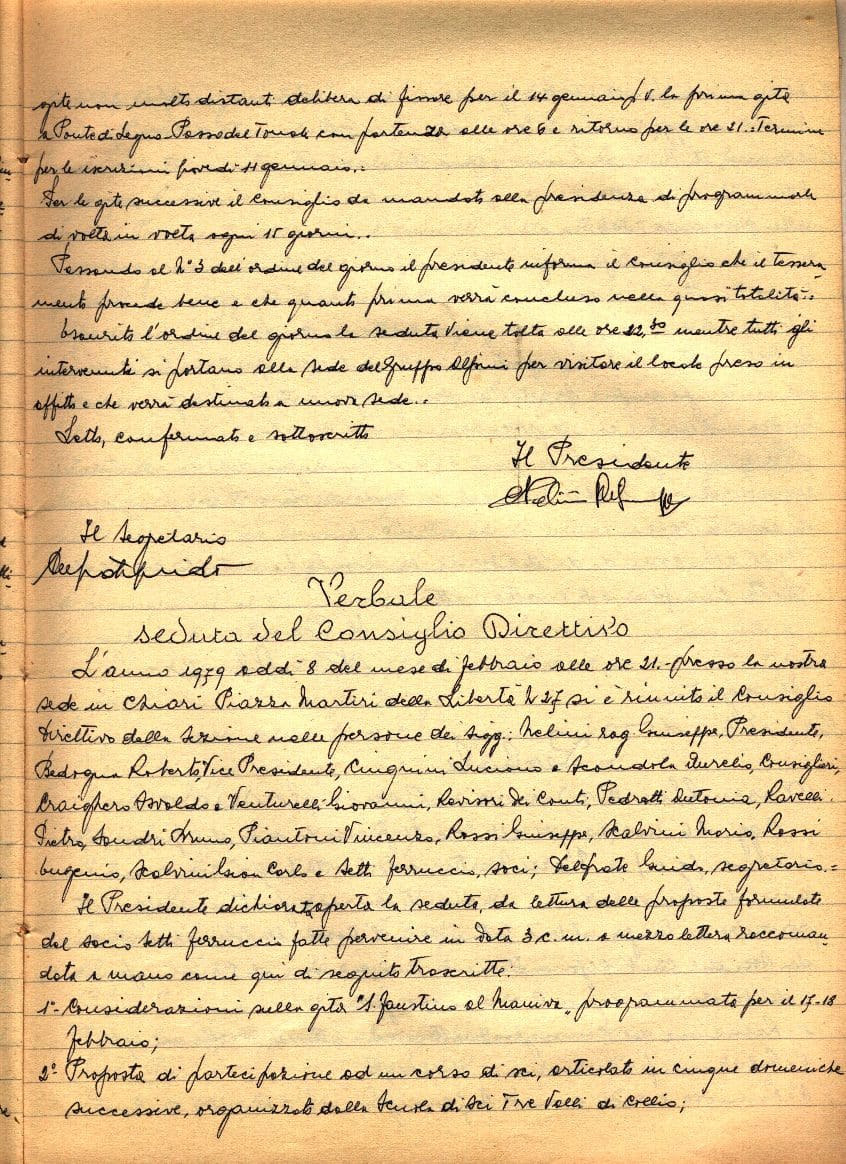 gite non molto distanti delibera di fissare per il 14 gennaio p.v. la prima gita
a Ponte di Legno - Passo del Tonale con partenza alle ore 6 e ritorno per le ore 21.= Termine
per le iscrizioni giovedì 11 gennaio.=
Per le gite successive il Consiglio da mandato alla presidenza di programmarle
di volta in volta ogni 15 giorni..
Passando al N° 3 dell'ordine del giorno il presidente informa il consiglio che il tessera
mento procede bene e che quanto prima verrà concluso nella quasi totalità.=
Esaurito l'ordine del giorno la seduta viene tolta alle ore 22,30 mentre tutti gli
intervenuti si portano alla sede del Gruppo Alpini per visitare il locale preso in
affitto e che verrà destinato a nuova sede..
Letto, confermato e sottoscritto
Il Presidente
Il Segretario
Verbale
seduta del Consiglio Direttivo
L'anno 1979 addì 8 del mese di febbraio alle ore 21.- presso la nostra
sede in Chiari Piazza Martiri della Libertà N 27 si è riunito il Consiglio
Direttivo della Sezione nelle persone dei sigg: Nelini rag Giuseppe, Presidente,
Bedogna Roberto Vice Presidente, Cinquini Luciano e Scandola Aurelio, Consiglieri,
Craighero Osvaldo e Venturelli Giovanni, Revisori dei Conti, Pedrotti Antonia, Ravelli
Pietro, Sandri Bruno, Piantoni Vincenzo, Rossi Giuseppe, Scalvini Mario, Rossi
Eugenio, Scalvini Gian Carlo e Setti Ferruccio, soci; Delfrate Guido, segretario.=
Il Presidente dichiarata aperta la seduta, da lettura delle proposte formulate
dal socio Setti Ferruccio fatte pervenire in data 3 c.m. a mezzo lettera raccoman-
data a mano come qui di seguito trascritte:
1°- Considerazioni sulla gita "S. Faustino al Maniva" programmata per il 17-18
febbraio;
2°- Proposta di partecipazione ad un corso di sci, articolato in cinque domeniche
successive, organizzato dalla Scuola di Sci Tre Valli di Collio;